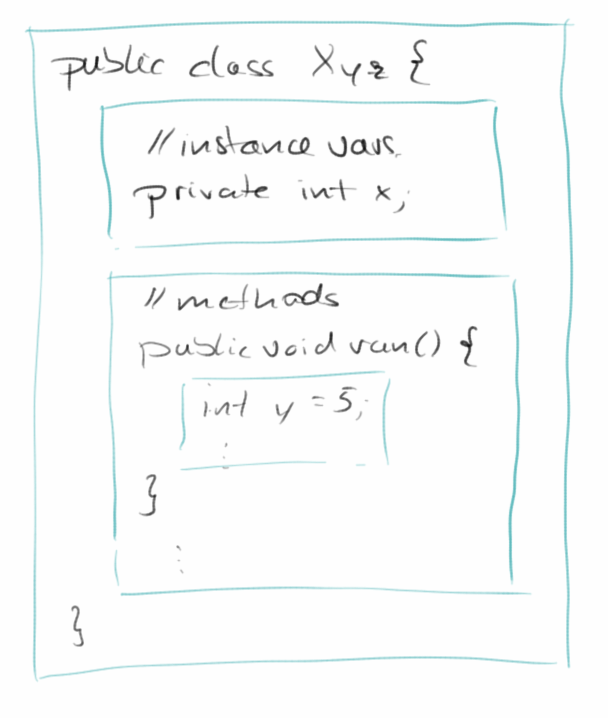 public class Xyz {
// instance vars.
private int x;
// methods
public void run() {
int y = 5;
⋮
}
⋮
}